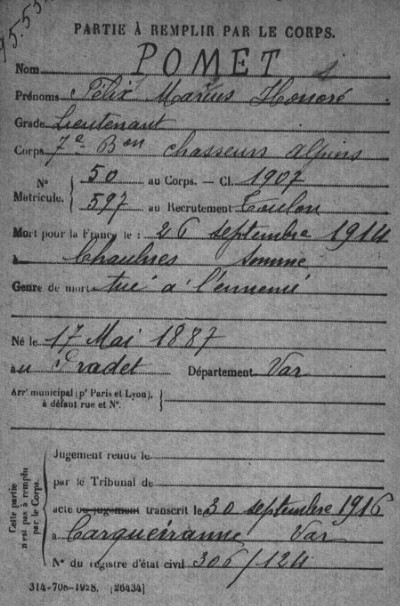 PARTIE À REMPLIR PAR LE CORPS.
Nom POMET
Prénoms Félix Marius Honoré
Grade Lieutenant
Corps 7e Bon chasseurs alpins
N° Matricule. { 50 au Corps. — Cl. 1907
597 au Recrutement Toulon
Mort pour la France le : 26 septembre 1914
à Chaulnes Somme
Genre de mort tué à l'ennemi
Né le 17 Mai 1887
au Pradet Département Var
Arr' municipal (p' Paris et Lyon), à défaut rue et N°. }
Cette partie n'est pas à remplir par le Corps.
Jugement rendu le
par le Tribunal de
acte ou jugement transcrit le 30 septembre 1916
à Carqueiranne Var
N° du registre d'état civil 306/124
314-708-1928. [26434]